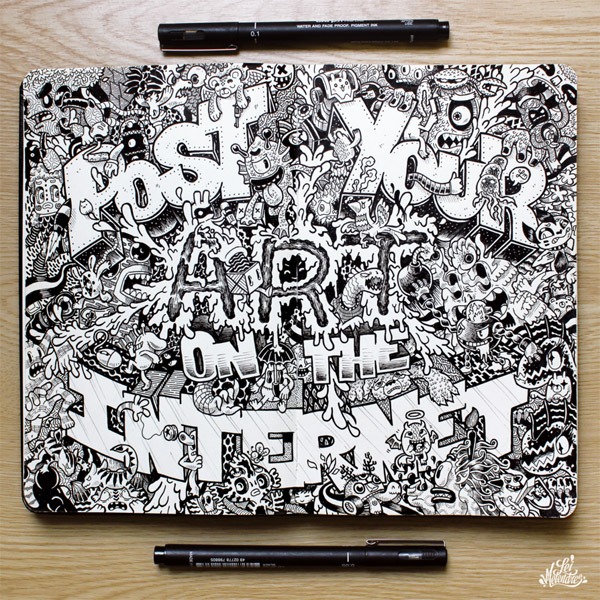 0.1
WATER AND FADE PROOF, PIGMENT INK
POST YOUR
ART
ON THE
INTERNET
Lei
Melendres